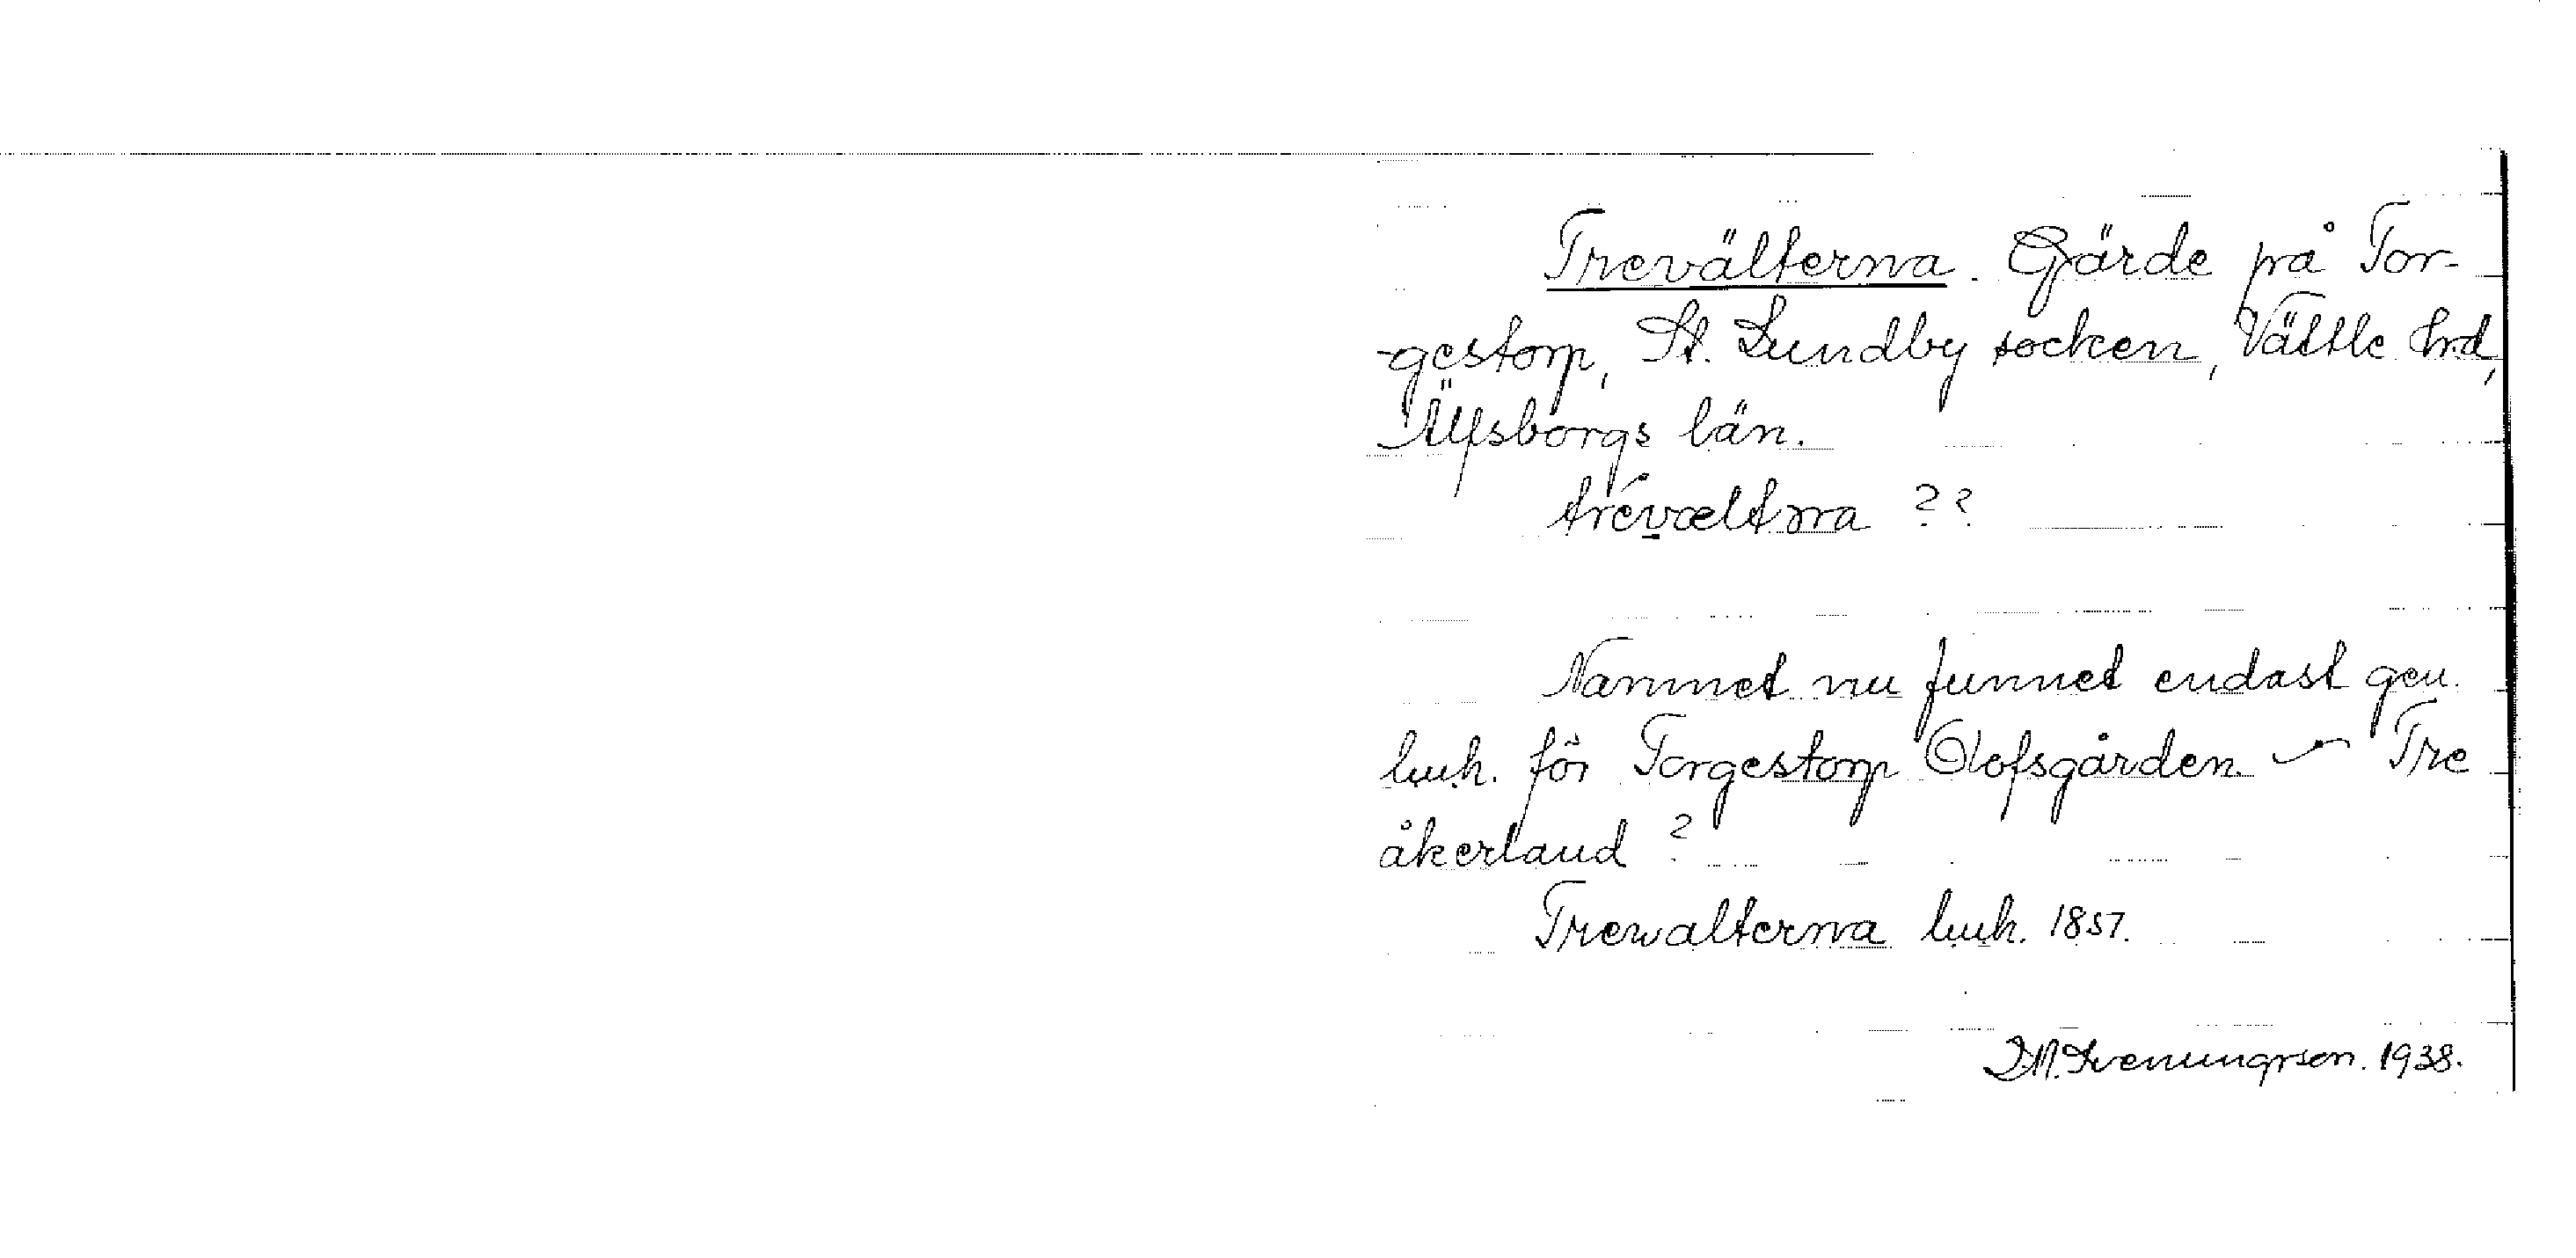 Trevälterna. Gärde på Tor-
-gestorp, St. Lundby socken, Vättle hrd,
Älfsborgs län.
trévæltṇa ??
Namnet nu funnet endast gen.
lmh. för Torgestorp Olofsgården. — Tre
åkerland ?
Trewalterna lmh. 1857.
D.N. Svenungsson. 1938.